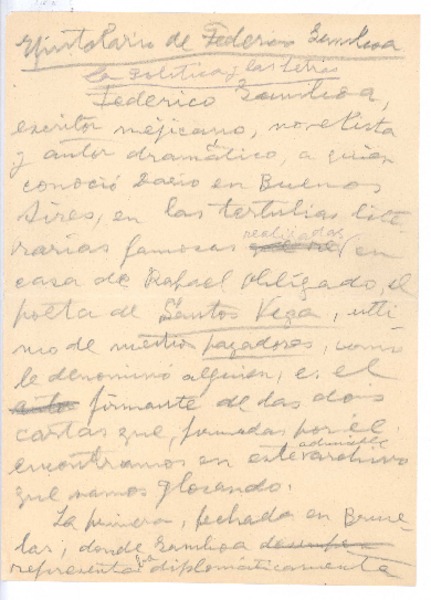 Epistolario de Federico Gamboa
La política y las letras
Federico Gamboa,
escritor mejicano, novelista
y autor dramático, a quien
conoció Darío en Buenos
Aires, en las tertulias lite
rarias famosas realizadas en
casa de Rafael Obligado, el
poeta de Santos Vega, ulti
mo de nuestros payadores, como
le denominó alguien, es el
firmante de las dos
cartas que, firmadas por él
encontramos en este admirable archivo
que vamos glosando.
La primera, fechada en Bruse
las, donde Gamboa
representaba diplomáticamente